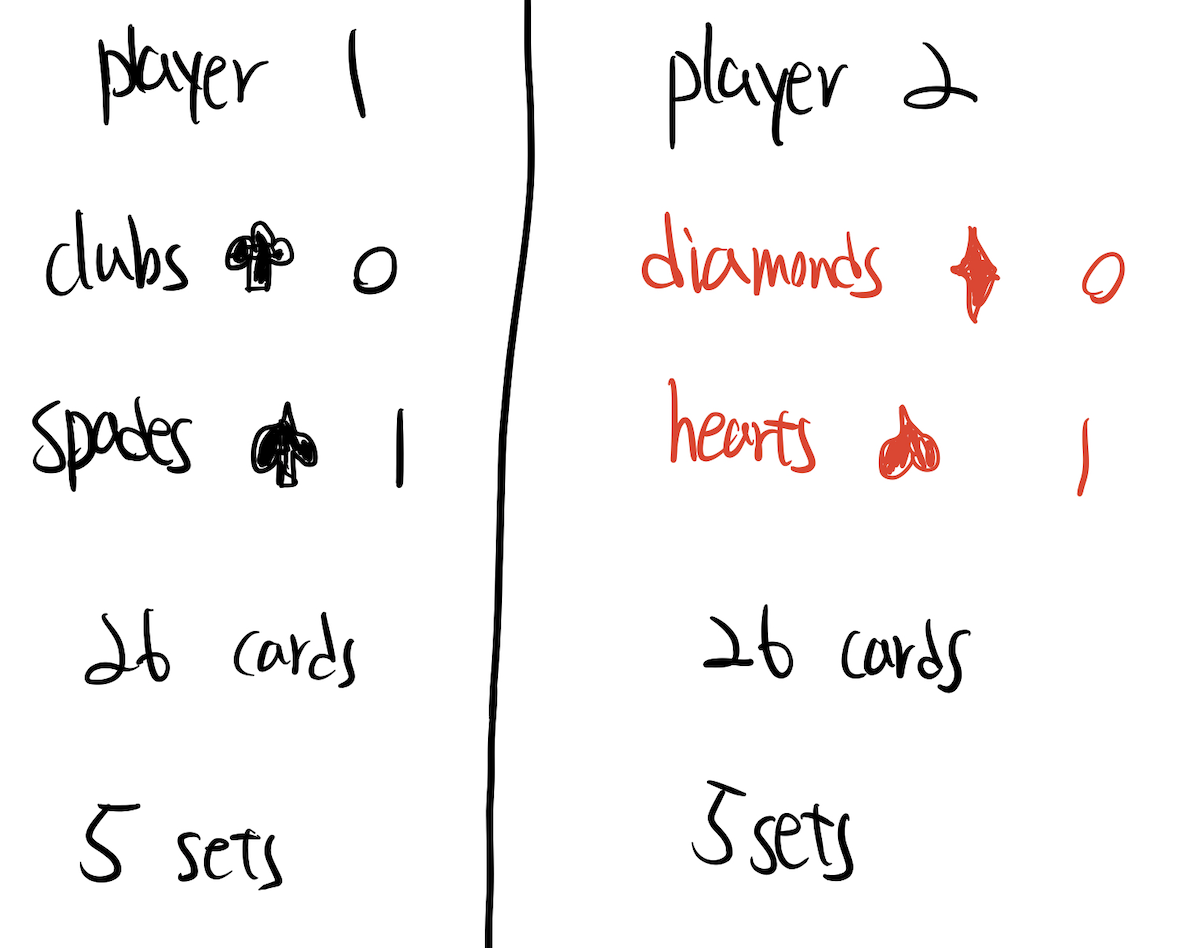 player 1
clubs ♣ 0
spades ♠ 1
26 cards
5 sets
player 2
diamonds ♦ 0
hearts ♥ 1
26 cards
5 sets